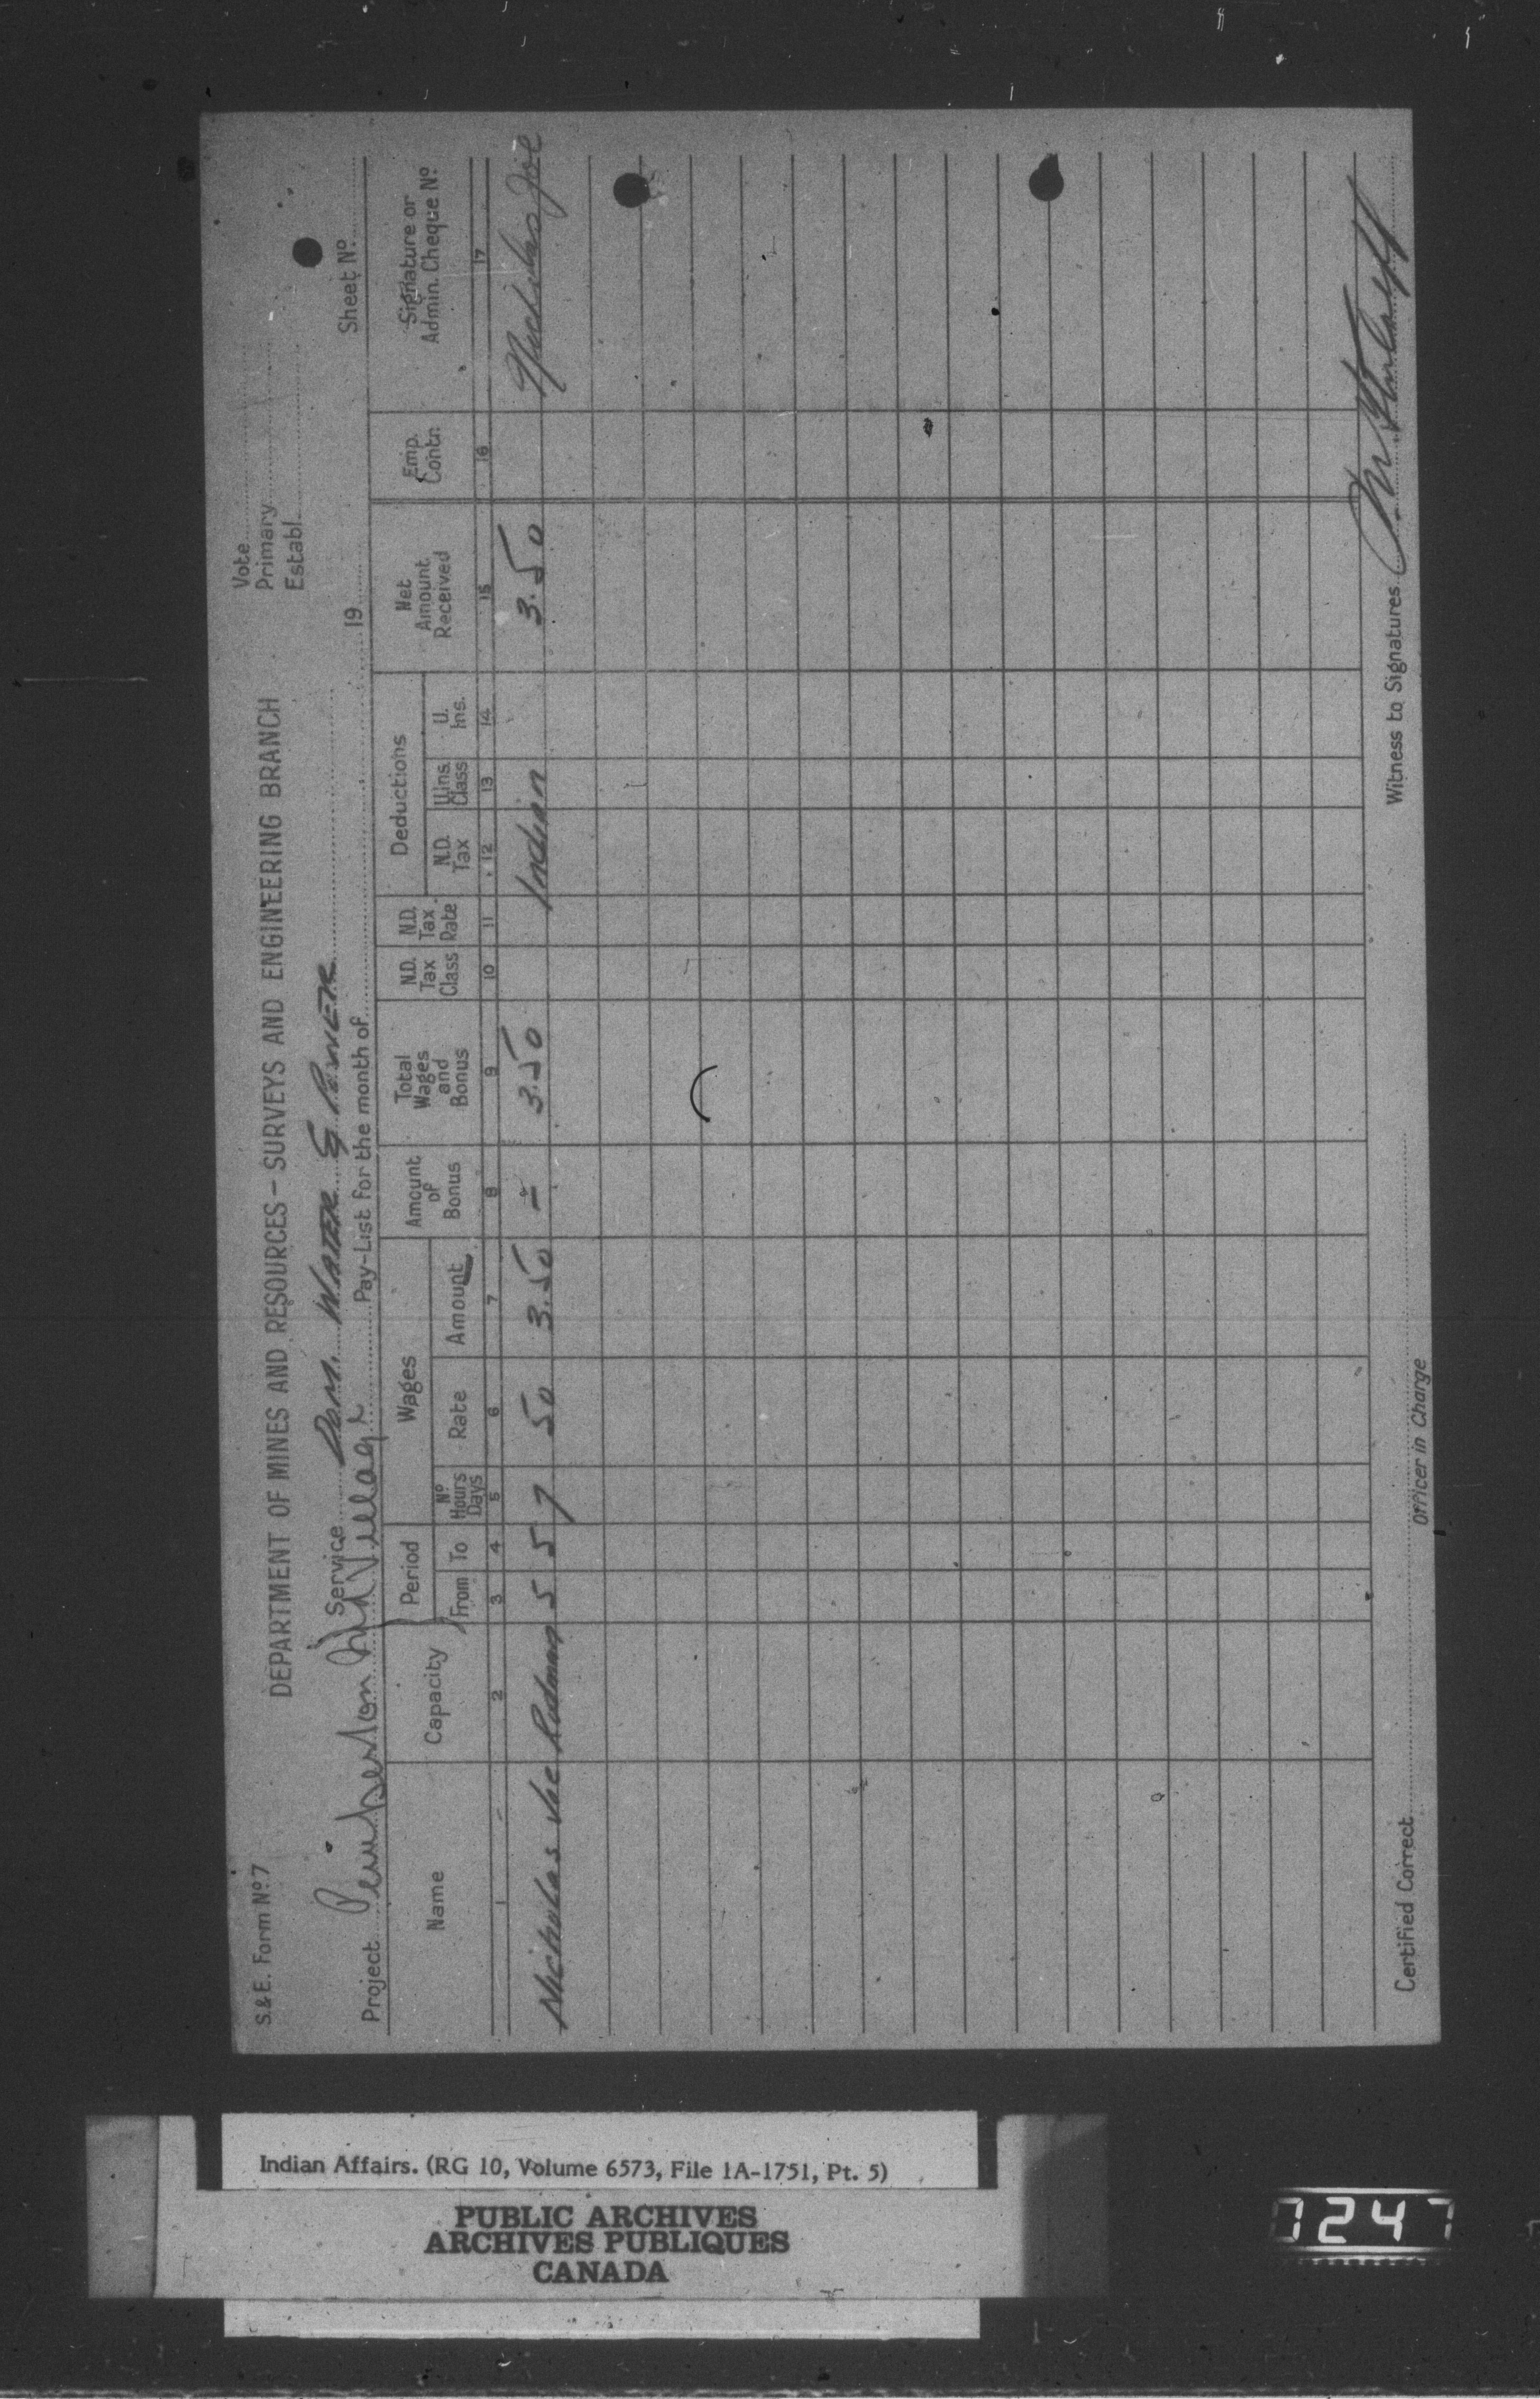 S.& E. Form Nº 7
Vote
Primary
Establ.
DEPARTMENT OF MINES AND RESOURCES – SURVEYS AND ENGINEERING BRANCH
Service Dom. WATER & POWER
Sheet Nº
Project Pemberton Village Pay-List for the month of 19
Name Capacity Period Wages Amount of Bonus Total Wages and Bonus N.D. Tax Class N.D. Tax Rate Deductions Net Amount Received Emp. Contn Signature or Admin. Cheque Nº
From To Nº Hours Days Rate Amount N.D. Tax U.Ins. Class U. Ins.
1 2 3 4 5 6 7 8 9 10 11 12 13 14 15 16 17
Nicholas Joe Rodman 5 5 7 50 3.50 – 3.50 Indian 3.50 Nicholas Joe
Certified Correct
Officer in Charge
Witness to Signatures
Indian Affairs. (RG 10, Volume 6573, File 1A-1751, Pt. 5)
PUBLIC ARCHIVES
ARCHIVES PUBLIQUES
CANADA
7247